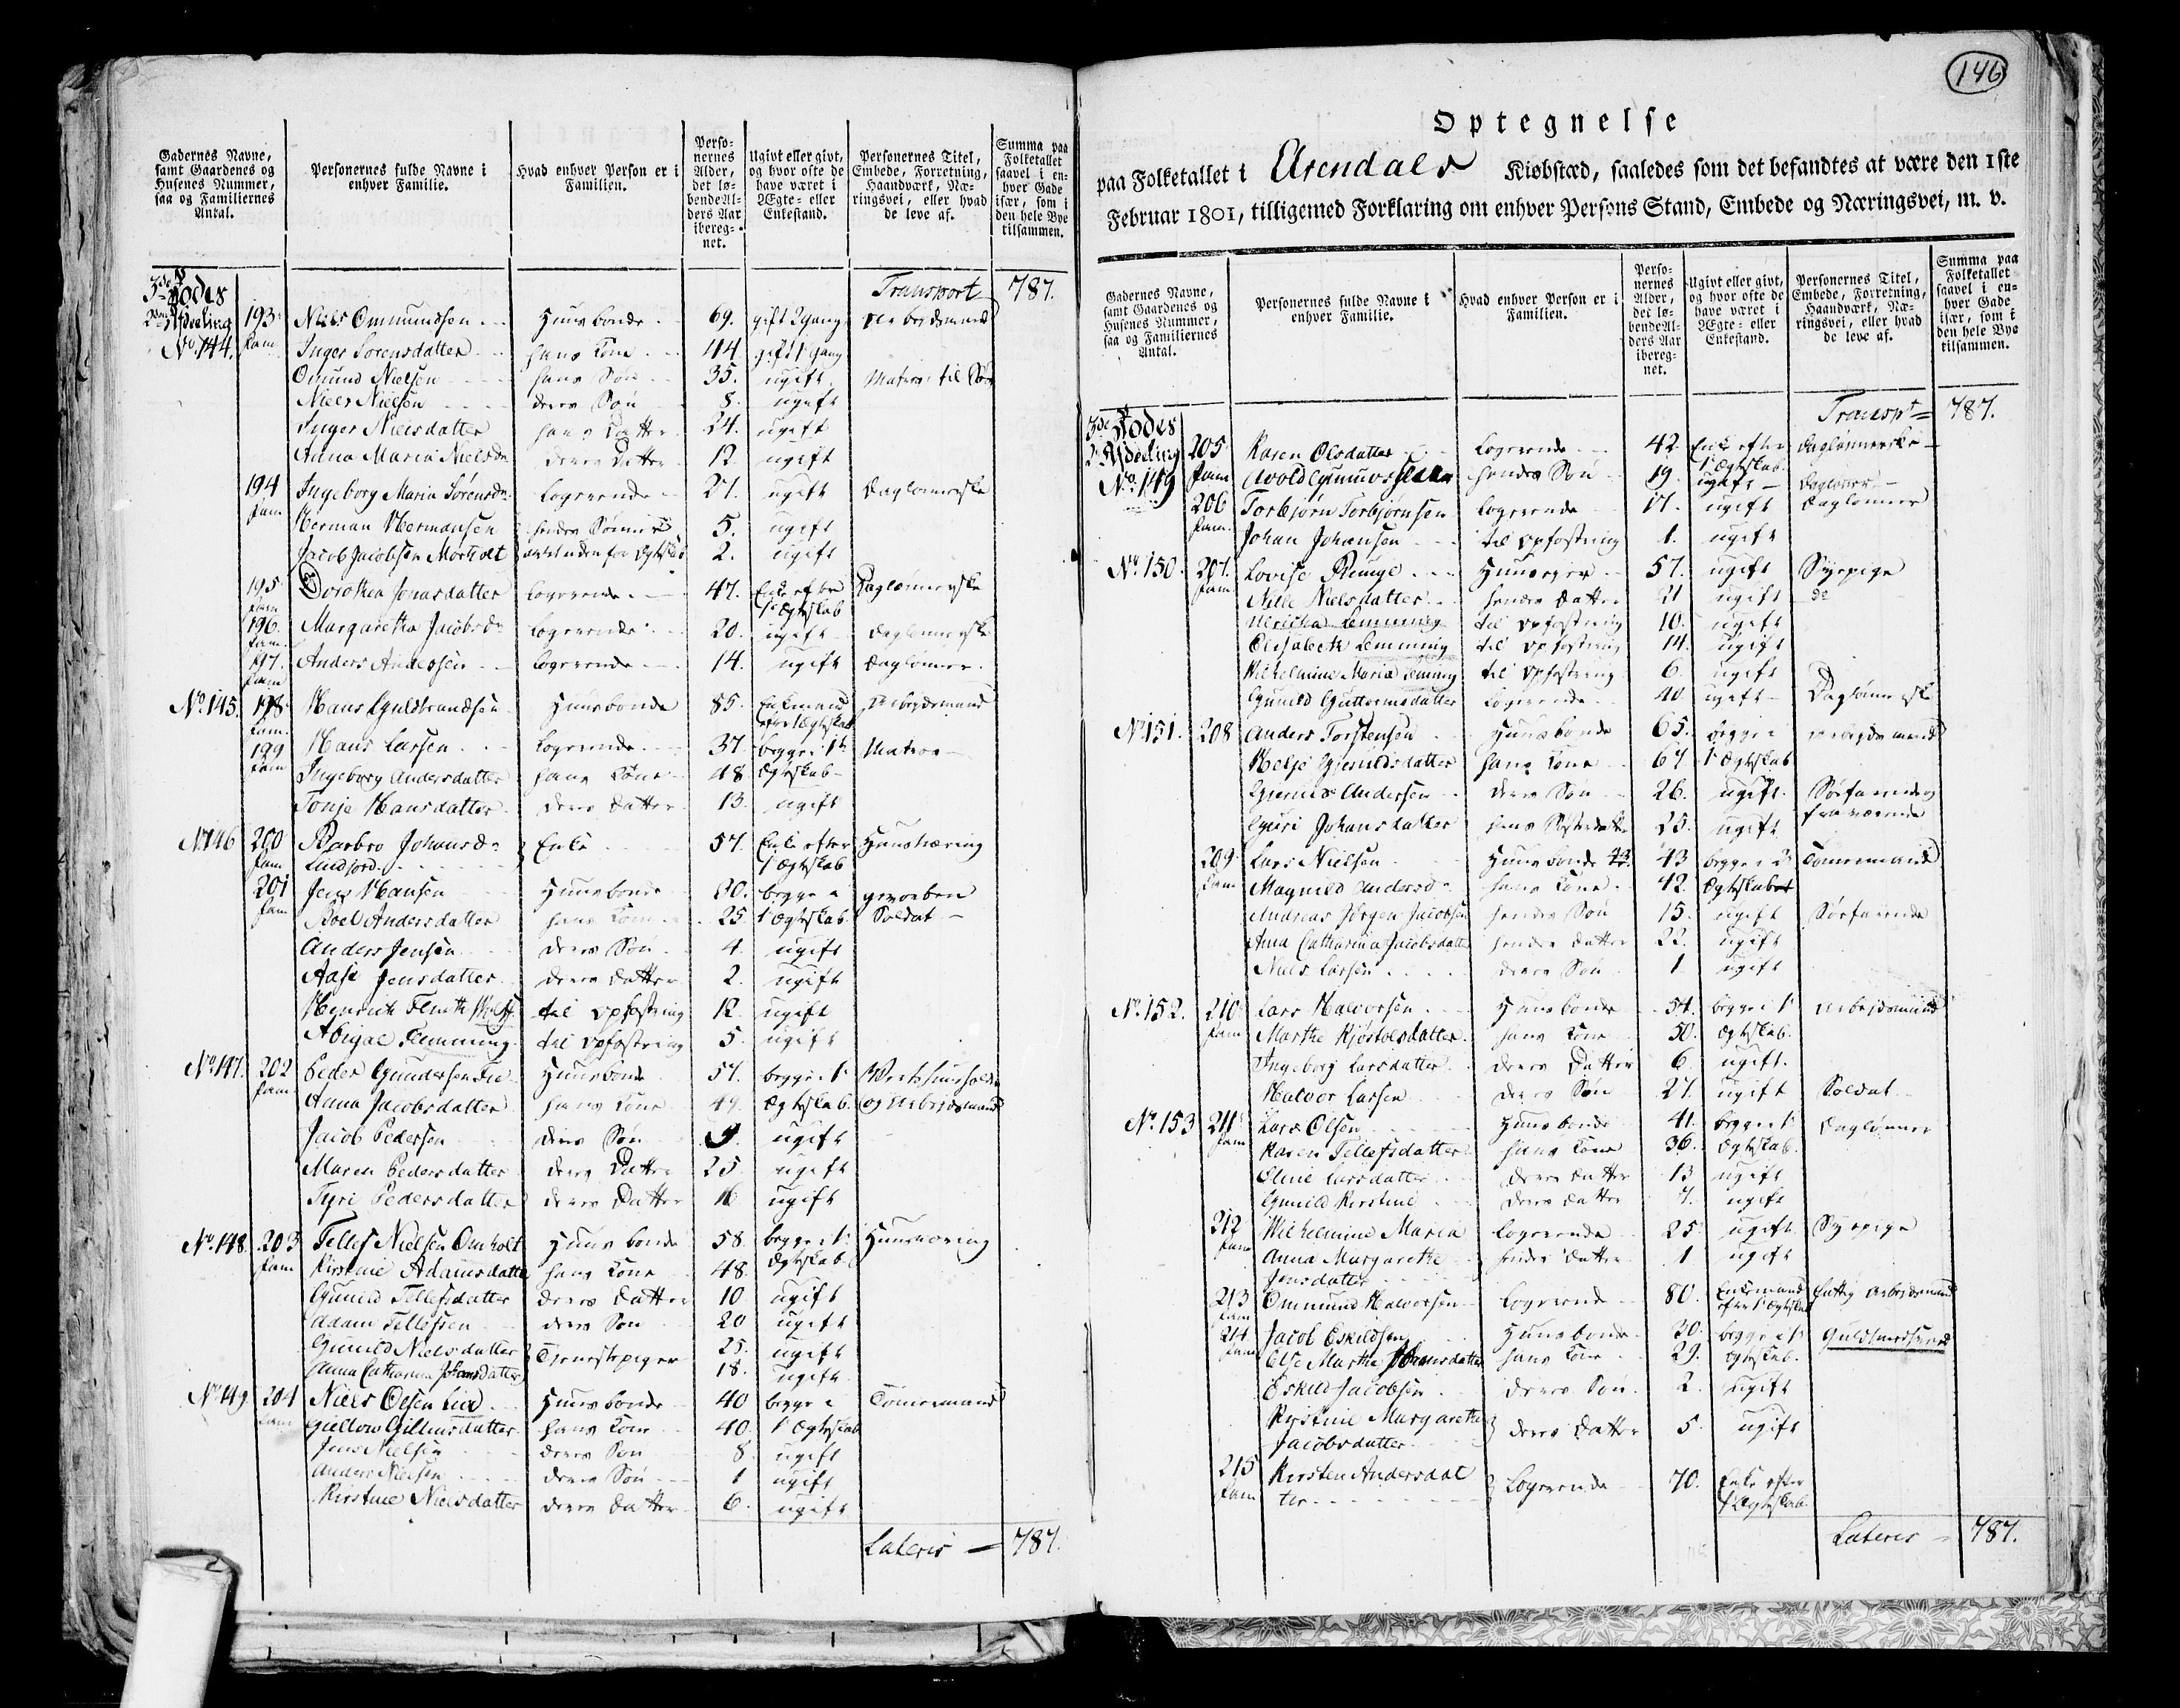 Gadernes Navne,
samt Gaardenes og
Husenes Nummer,
saa og Familiernes
Antal.
Personernes fulde Navne i
enhver Familie.
Hvad enhver Person er i
Familien.
Perso-
nernes
Alder,
det lø-
bende Al-
ders Aar
ibereg-
net.
Ugivt eller givt,
og hvor ofte de
have været i
Ægte- eller
Enkestand.
Personernes Titel,
Embede, Forretning,
Haandværk, Næ-
ringsvei, eller hvad
de leve af.
Summa paa
Folketallet
saavel i en-
hver Gade
især, som i
den hele Bye
tilsammen.
3de Rodes Transport 787.
2den Afdeeling 193 Niels Ommundsen Huusbonde 69. gift 2 gang Arbejdsmand
No. 144. fam Inger Sorensdatter hans Kone 44. gift 1 gang
Omund Nielsen hans Søn 35. ugift Matros til Søs
Niels Nielsen deres Søn 8. ugift
Inger Nielsdatter hans Datter 24. ugift
Anna Maria Nielsdr deres Datter 12. ugift
194 Ingeborg Maria Sørensdr Logerende 27. ugift Daglønnerske
fam Herman Hermansen hendes Sønner 5. ugift
Jacob Jacobsen avlet uden for Ægteskab 2. ugift
195 Dorothea Jonasdatter Logerende 47. Enke efter Daglønnerske
fam 1 Ægteskab
196. Margaretha Jacobsdr Logerende 20. ugift Daglønnerske
fam.
197. Anders Andersen Logerende 14. ugift Daglønner
fam
No. 145. 198 Hans Guldbrandsen Huusbonde 85. Enkemand Arbejdsmand
fam. efter 1 Ægteskab
199 Hans Larsen Logerende 37. begge i 1te Matros
fam Ingeborg Andersdatter hans Kone 48 Ægteskab
Tonje Hansdatter deres Datter 13. ugift
No 146 200 Barbro Johansdr Enke 57. Enke efter Huusnæring
fam Lindjord 1 Ægteskab
201 Jens Hansen Huusbonde 30. begge i gevorben
fam Boel Andersdatter hans Kone 25 1 Ægteskab Soldat
Anders Jensen deres Søn 4. ugift
Aase Jensdatter deres Datter 2. ugift
Henrich til Opfostring 12. ugift
Abigael Flemming til Opfostring 5. ugift
No. 147. 202 Peder Gundersen Huusbonde 57. begge i 1 Wertshuusholder
fam Anna Jacobsdatter hans Kone 49. Ægteskab. og Arbejdsmand
Jacob Pedersen deres Søn 9. ugift
Maren Pedersdatter deres Datter 25 ugift
Tyri Pedersdatter deres Datter 16 ugift
No. 148. 203 Tellef Nielsen Omholt Huusbonde 58. begge i 1 Huusnæring
fam Kirstine Adamsdatter hans Kone 48. Ægteskab
Gunild Tellefsdatter deres Datter 10 ugift
Adam Tellefsen deres Søn 20 ugift
Gunild Nielsdatter Tjenestepiger 25. ugift
Anna Catharina Johansdatter 18. ugift
No. 149 204 Niels Olsen Lied Huusbonde 40 begge i Tømermand
fam hans Kone 40. 1 Ægteskab
Jens Nielsen deres Søn 8 ugift
Anders Nielsen deres Søn 1 ugift
Kirstine Nielsdatter deres Datter 6. ugift
Lateris 787.
146
Optegnelse
paa Folketallet i Arendals Kiøbstæd, saaledes som det befandtes at være den 1ste
Februar 1801, tilligemed Forklaring om enhver Persons Stand, Embede og Næringsvei, m. v.
Gadernes Navne,
samt Gaardenes og
Husenes Nummer,
saa og Familiernes
Antal.
Personernes fulde Navne i
enhver Familie.
Hvad enhver Person er i
Familien.
Perso-
nernes
Alder,
det lø-
bende Al-
ders Aar
ibereg-
net.
Ugivt eller givt,
og hvor ofte de
have været i
Ægte- eller
Enkestand.
Personernes Titel,
Embede, Forretning,
Haandværk, Næ-
ringsvei, eller hvad
de leve af.
Summa paa
Folketallet
saavel i en-
hver Gade
især, som i
den hele Bye
tilsammen.
3de Rodes Transpt 787.
2 Afdeeling 205 Karen Olsdatter Logerende 42 Enke efter Daglønnerske
No. 149 fam 1 Ægteskab
hendes Søn 19. ugift Daglønner
206 Torbjørn Torbjørnsen Logerende 17. ugift Daglønner
fam. Johan Johansen til Opfostring 1. ugift
No. 150. 207. Lovise Runge Huuseyer 57. ugift Syepige
fam Nille Nielsdatter hendes Datter 21 ugift do
Ulricha Lemming til Opfostring 10. ugift
Elisabeth Lemming til Opfostring 14. ugift
Wilhelmine Maria Leming til Opfostring 6. ugift
Gunild Guttormsdatter Logerende 40 ugift Daglønnerske
No 151. 208 Anders Torstensen Huusbonde 65. begge i Arbejdsmand
Helje hans Kone 67 1 Ægteskab
Andersen deres Søn 26. ugift. Søefarende og
Guri Johansdatter hans Søsterdatter 25. ugift fraværende
209 Lars Nielsen Huusbonde 43 begge i 2 Tømermand
fam Magnild Andersdr hans Kone 42. Ægteskab
Andreas Jørgen Jacobsen hendes Søn 15. ugift Søefarende
Anna Catharina Jacobsdatter hendes Datter 22. ugift
Niels Larsen deres Søn 1 ugift
No. 152. 210 Lars Halvorsen Huusbonde 54. begge i 1 Arbejdsmand
fam Marthe Kjøstolsdatter hans Kone 50. Ægteskab.
Ingeborg Larsdatter deres Datter 6. ugift.
Halvor Larsen deres Søn 27. ugift Soldat
No. 153 211 Lars Olsen Huusbonde 41. begge i 1 Daglønner
fam Karen Tellefsdatter hans Kone 36. Ægteskab.
Eline Larsdatter deres Datter 13 ugift
Gunild Kirstine deres Datter 7. ugift
212 Wilhelmine Maria Logerende 25 ugift Syepige
fam Anna Margarethe hendes Datter 1 ugift
Jensdatter
213 Ommund Halvorsen Logerende 80. Enkemand fattig Arbejdsmand
fam efter 1 Ægteskab
214 Jacob Eskildsen Huusbonde 30. begge i 1 Guldsmedsvend
fam Else Marthe Johansdatter hans Kone 29. Ægteskab.
Eskild Jacobsen deres Søn 2. ugift
Kirstine Margarethe deres Datter 5. ugift
Jacobsdatter
215 Kirsten Andersdat Logerende 70. Enke efter
fam ter 1 Ægteskab.
Lateris 787.